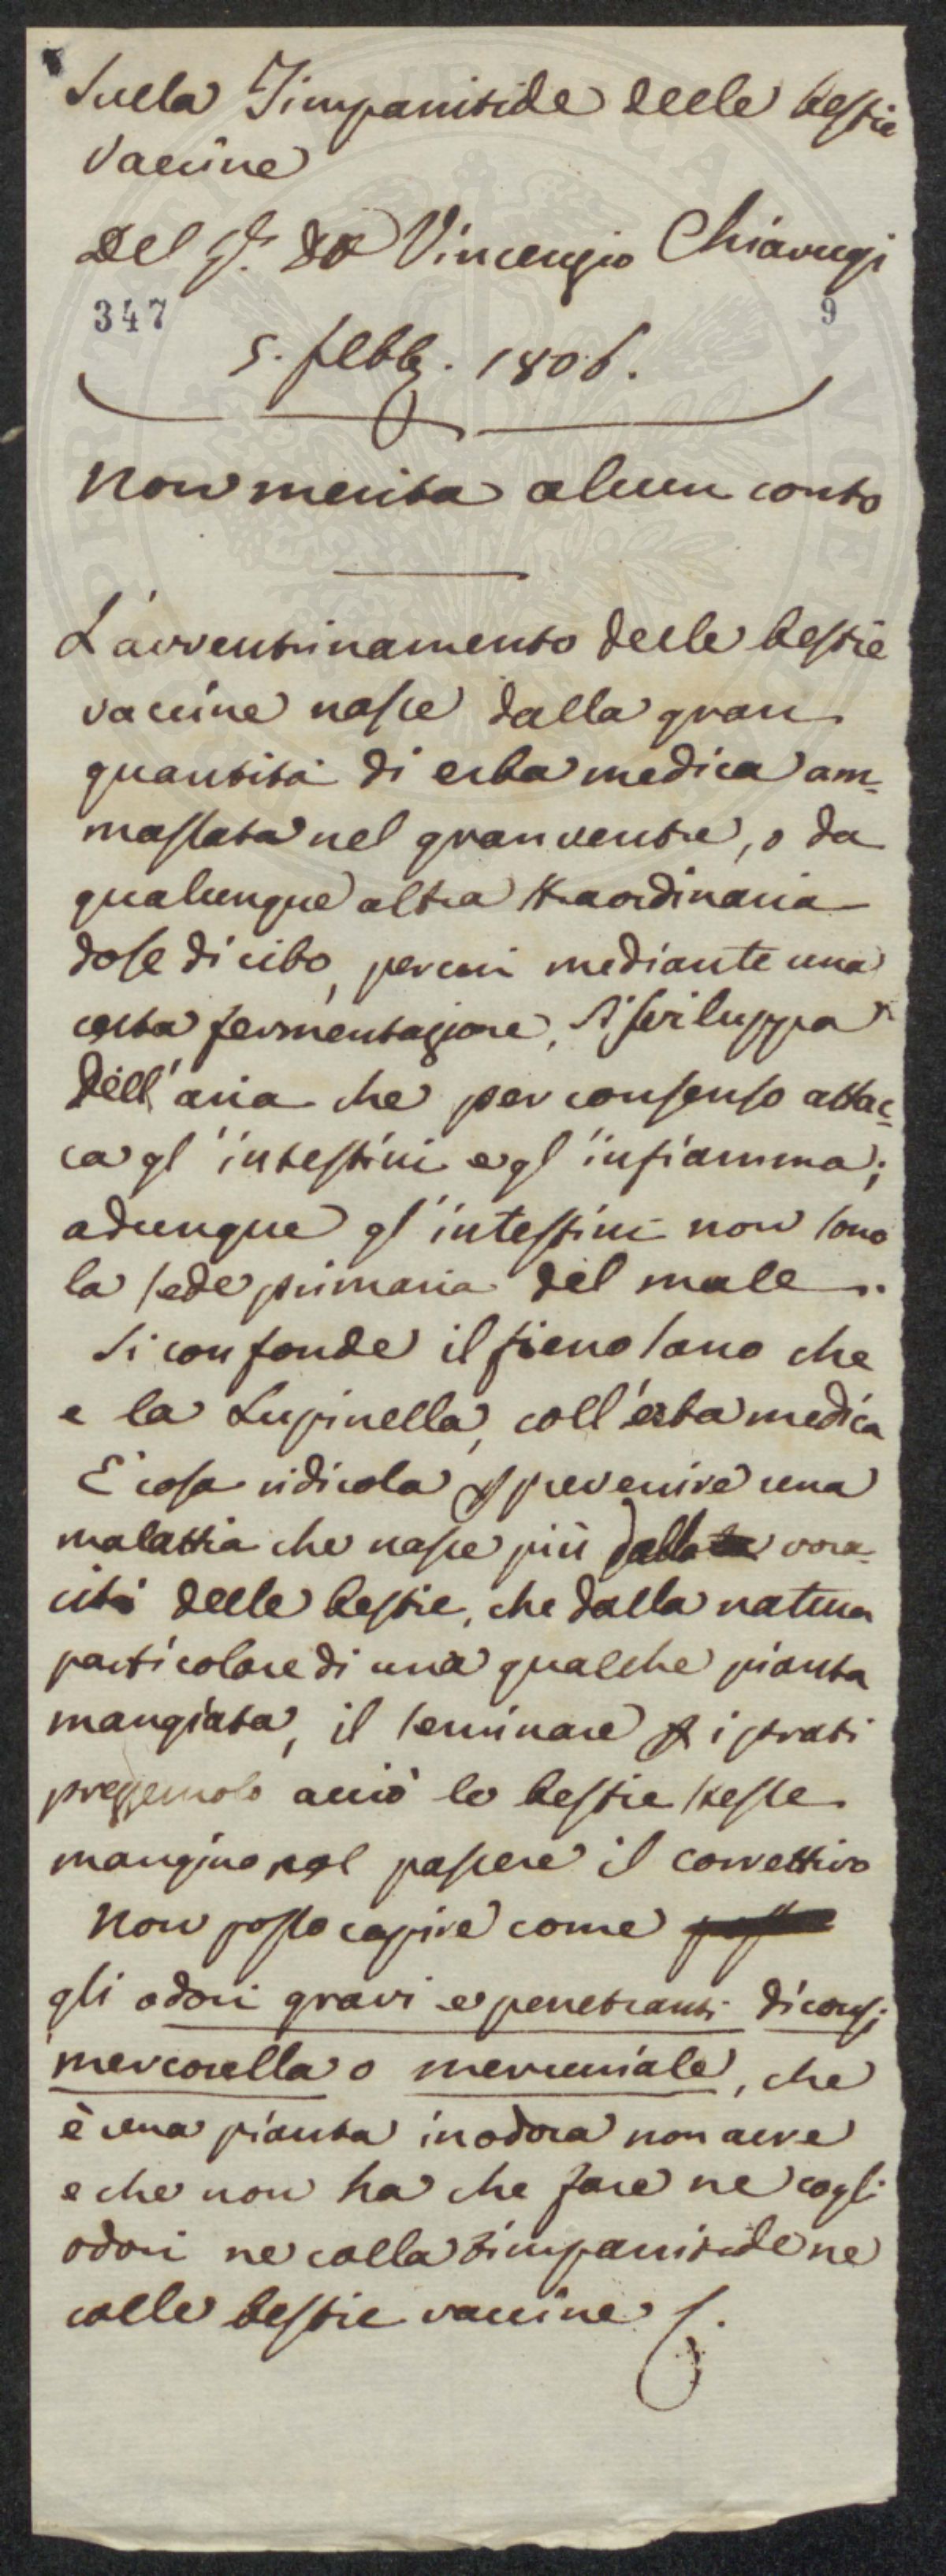 Sulla Timpanitide delle bestie
Vaccine
Del Sr. Do Vincenzio Chiarugi
347 9
5. febbo. 1806.
Non merita alcun conto
L'avventrinamento delle bestie
vaccine nasce dalla gran
quantità di erba medica am-
massata nel gran ventre, o da
qualunque altra straordinaria
dose di cibo, per cui mediante una
certa fermentazione, si sviluppa
dell'aria che per consenso attac-
ca gl'intestini e gl'infiamma;
adunque gl'intestini non sono
la sede primaria del male.
Si confonde il fieno sano che
e la Lupinella, coll'erba medica
E cosa ridicola p prevenire una
malattia che nasce più dalla vora-
cità delle bestie, che dalla natura
particolare di una qualche pianta
mangiata, il seminare p i prati
prezzemolo acciò le bestie stesse
mangino nel pascere il correttivo
Non posso capire come
gli odori gravi e penetranti dicansi
mercorella o mercuriale, che
è una pianta inodora non acre
e che non ha che fare ne cogli
odori ne colla timpanitide ne
colle bestie vaccine